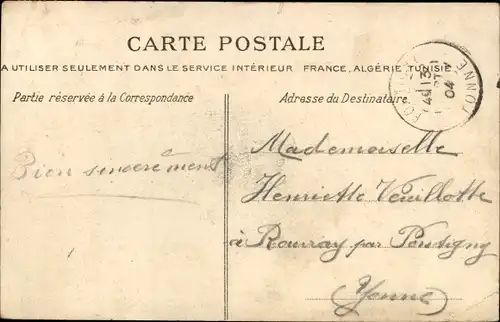 CARTE POSTALE
A UTILISER SEULEMENT DANS LE SERVICE INTÉRIEUR FRANCE, ALGÉRIE TUNISIE
Partie réservée à la Correspondance
Adresse du Destinataire
13
04
YONNE
Bien sincèrement
Mademoiselle
Henriette Veuillotte
à Rouvray par Pontigny
Yonne